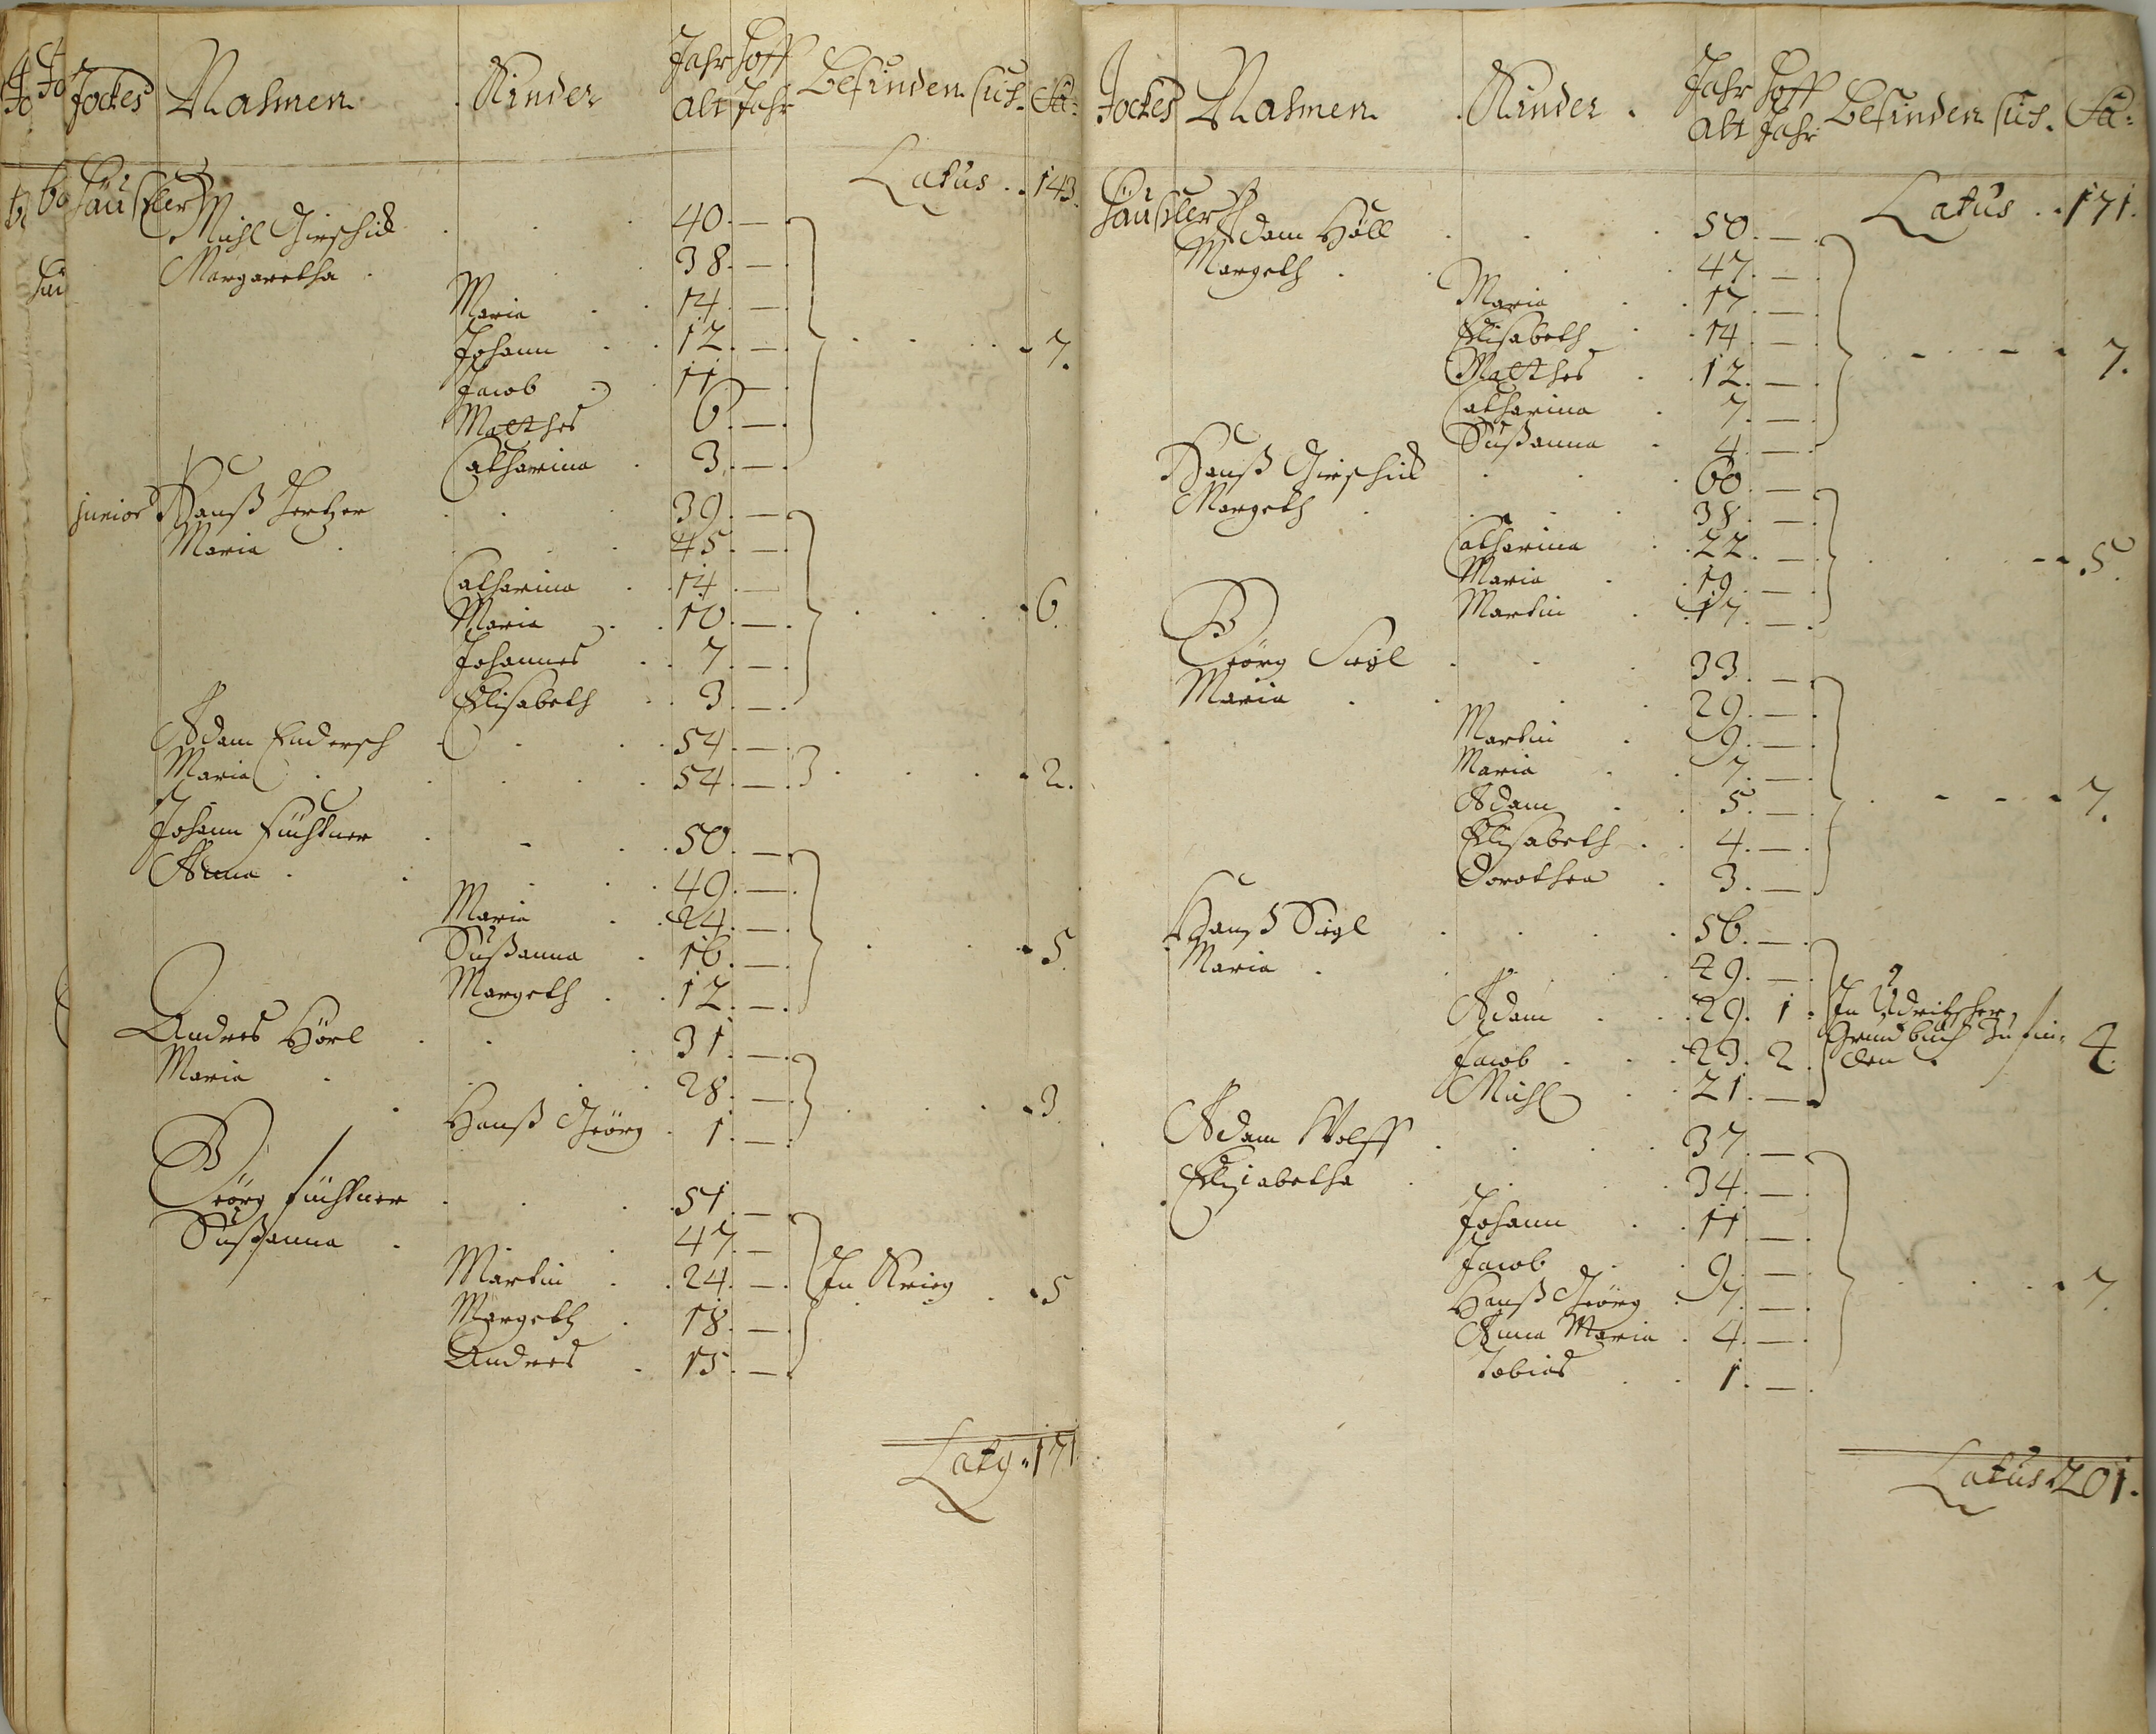 Jockes Nahmen Kinder Jahr alt Hoff Jahr Befinden sich Sa:
Latus 143.
Häußler Michl Girschick 40. —
Margaretha 38. —
Maria 14. —
Johann 12. — 7.
Jacob 11 —
Matthes 6. —
Catharina 3. —
junior Hanß Hertzer 39. —
Maria 45. —
Catharina 14. —
Maria 10. — 6.
Johannes 7. —
Elisabeth 3. —
Adam Endersch 54. —
Maria 54. — 2.
Johann Füchtner 50. —
Anna 49. —
Maria 24. —
Sußanna 16. — 5.
Margeth 12. —
Andres Hörl 31. —
Maria 28. — 3
Hanß Geörg 1. —
Geörg Füchtner 51. —
Sußanna 47. —
Martin 24. — In Krieg 5
Margeth 18. —
Andres 15. —
Latus 171
Jockes Nahmen Kinder Jahr alt Hoff Jahr Befinden sich Sa:
Latus 171.
Häußler Adam Höll 50. —
Margeth 47. —
Maria 17. —
Elisabeth 14. — 7.
Matthes 12. —
Catharina 7. —
Sußanna 4. —
Hanß Girschick 60. —
Margeth 38. —
Catharina 22. — 5.
Maria 19. —
Martin 17. —
Geörg Siegl 33. —
Maria 29. —
Martin 9. —
Maria 7. —
Adam 5. — 7.
Elisabeth 4. —
Dorothea 3. —
Hanß Siegl 56. —
Maria 49. —
Adam 29. 1. In Udritscher
Jacob 23. 2. Grundbuch zu fin= 4.
den
Michl 21. —
Adam Wolff 37. —
Elisabetha 34. —
Johann 11 —
Jacob 9. —
Hanß Geörg 7. — 7.
Anna Maria 4. —
Tobias 1. —
Latus 201.